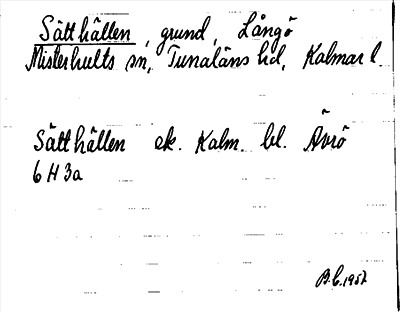 Sätthällen, grund, Långö
Misterhults sn, Tunaläns hd, Kalmar l.
Sätthällen ek. Kalm. bl. Ävrö
6 H 3a
B.C. 1957